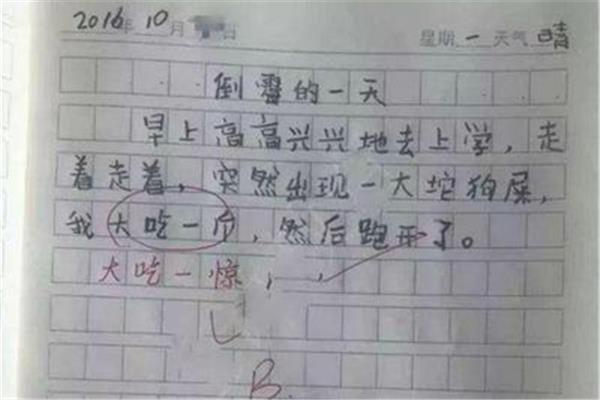 2016年10月 日 星期一 天气晴
倒霉的一天
早上高高兴兴地去上学，走
着走着，突然出现一大坨狗屎，
我大吃一斤，然后跑开了。
大吃一惊，
B